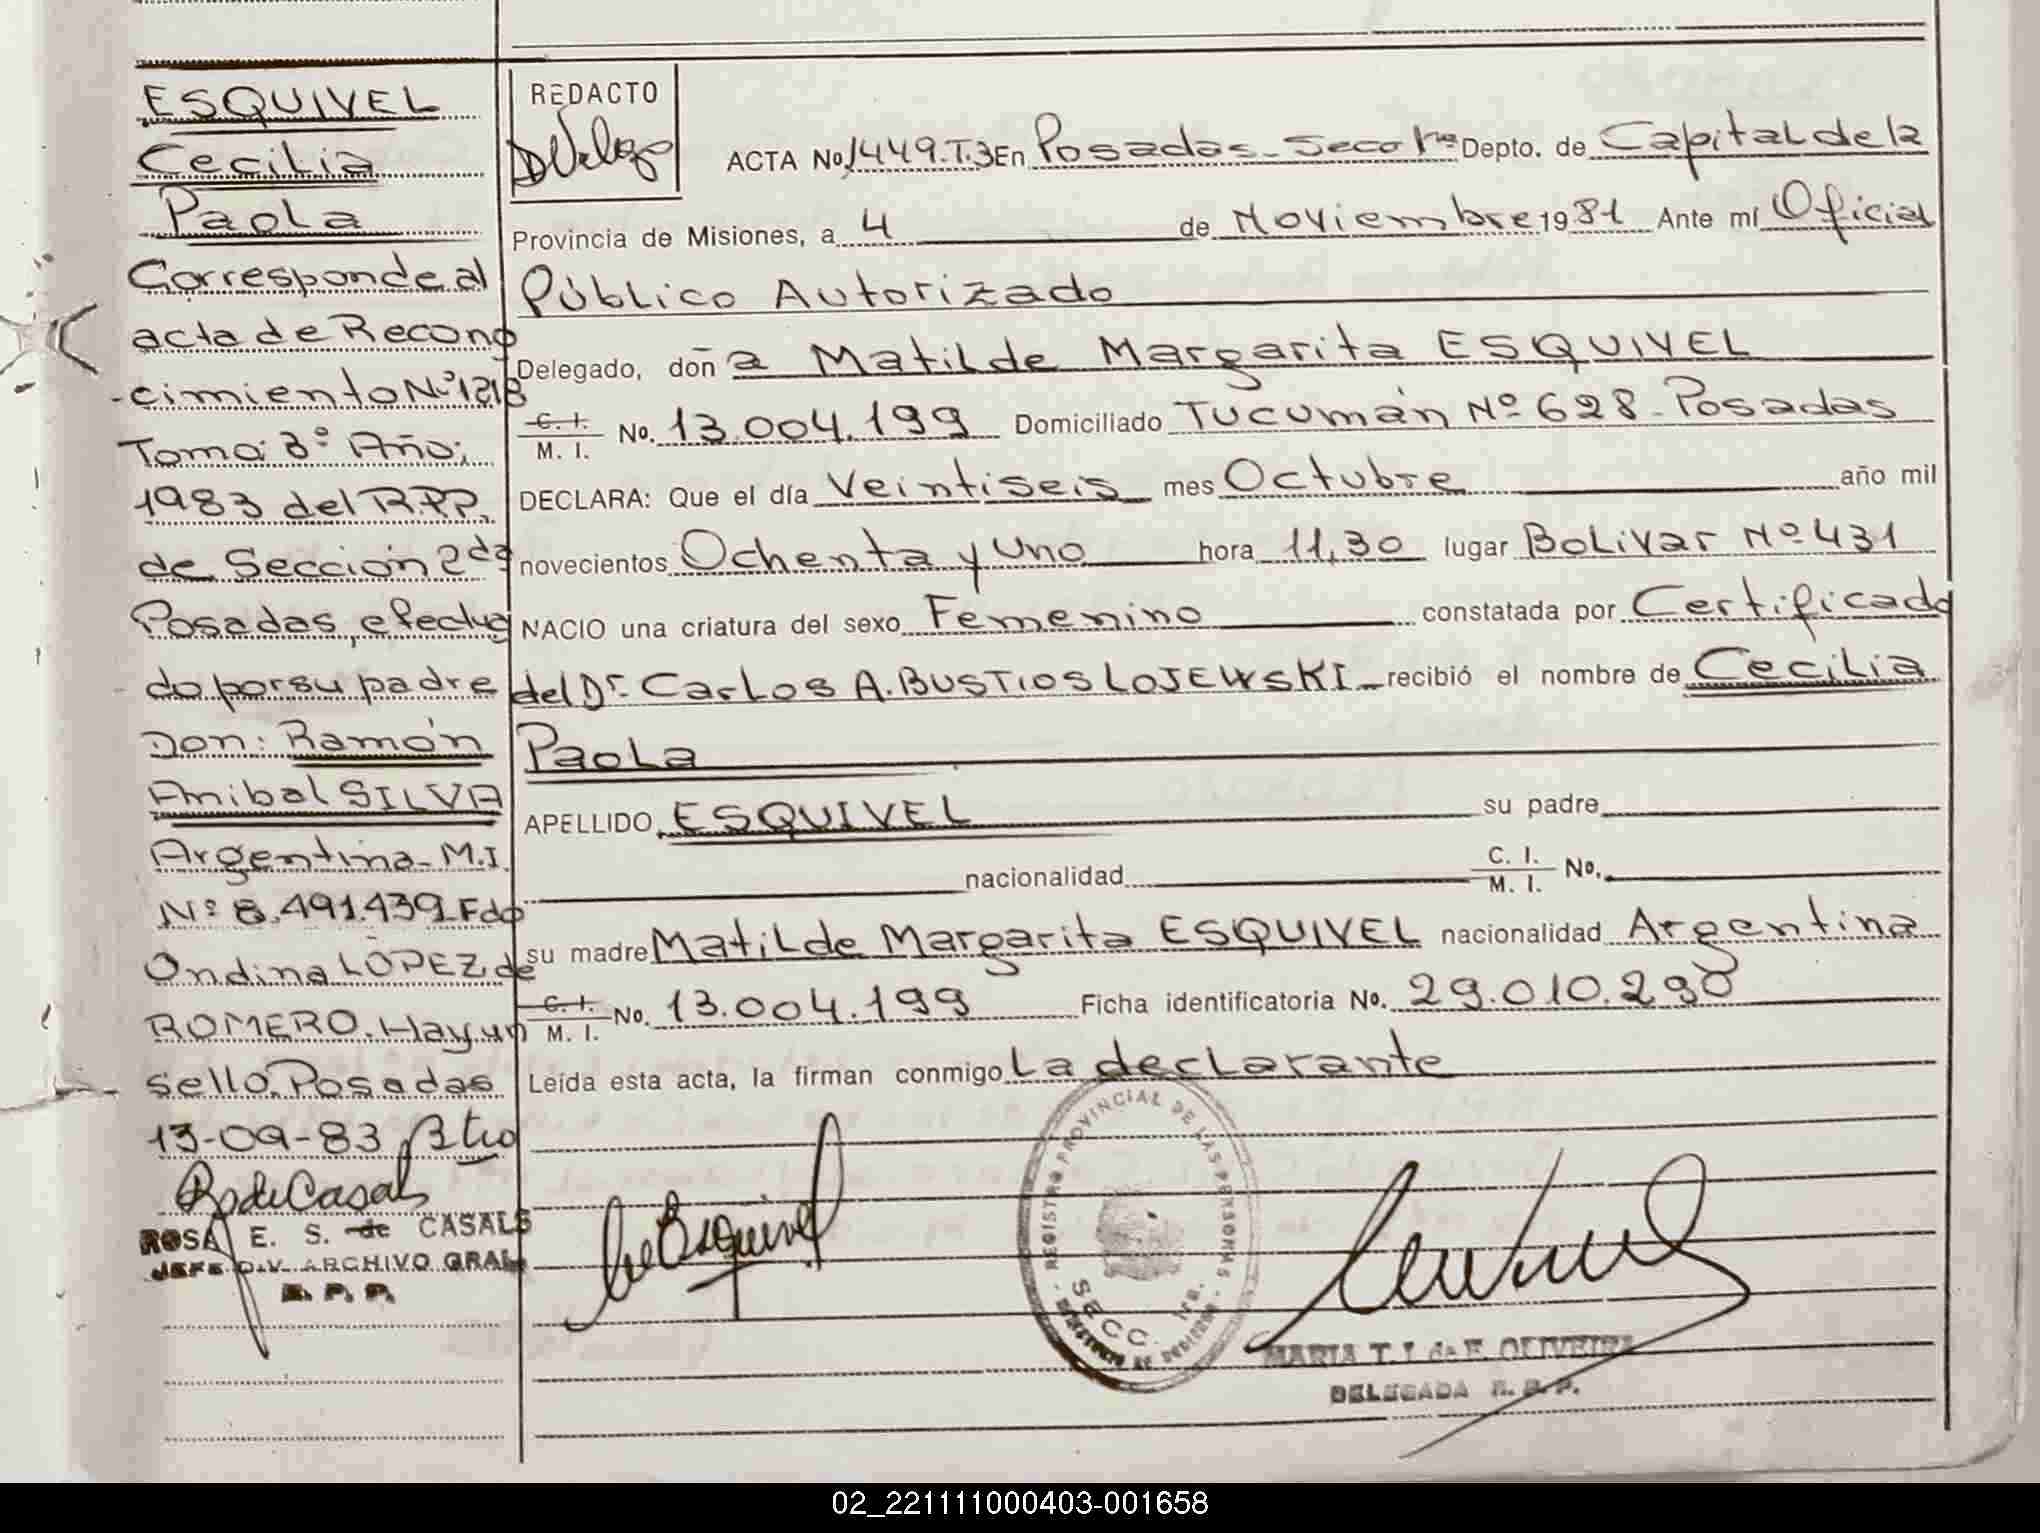 ESQUIVEL
Cecilia
Paola
Corresponde al
acta de Recono
-cimiento Nº 1218
Tomo: 3º Año;
1983 del R.P.P.
de Sección 2da
Posadas, efectua
do por su padre
Don: Ramón
Anibal SILVA
Argentina - M.I.
Nº 8.491.439 Fdo
Ondina LÓPEZ de
ROMERO. Hay un
sello. Posadas
13-09-83
ROSA E. S. de CASALS
JEFE DIV. ARCHIVO GRAL.
R. P. P.
REDACTO
ACTA No. 1449.T.3 En Posadas - Secc 1ra Depto. de Capital de la
Provincia de Misiones, a 4 de Noviembre 1981 Ante mí Oficial
Público Autorizado
Delegado, doña Matilde Margarita ESQUIVEL
C. I. / M. I. No. 13.004.199 Domiciliado Tucumán Nº 628 - Posadas
DECLARA: Que el día Veintiseis mes Octubre año mil
novecientos Ochenta y Uno hora 11,30 lugar Bolivar Nº 431
NACIO una criatura del sexo Femenino constatada por Certificado
del Dr. Carlos A. BUSTIOS LOJEWSKI recibió el nombre de Cecilia
Paola
APELLIDO ESQUIVEL su padre
nacionalidad C. I. / M. I. No.
su madre Matilde Margarita ESQUIVEL nacionalidad Argentina
C. I. / M. I. No. 13.004.199 Ficha identificatoria No. 29.010.290
Leída esta acta, la firman conmigo La declarante
Esquivel
REGISTRO PROVINCIAL DE LAS PERSONAS
SECC. 1ra.
MARIA T. I. de F. OLIVEIRA
DELEGADA R. P. P.
02_221111000403-001658